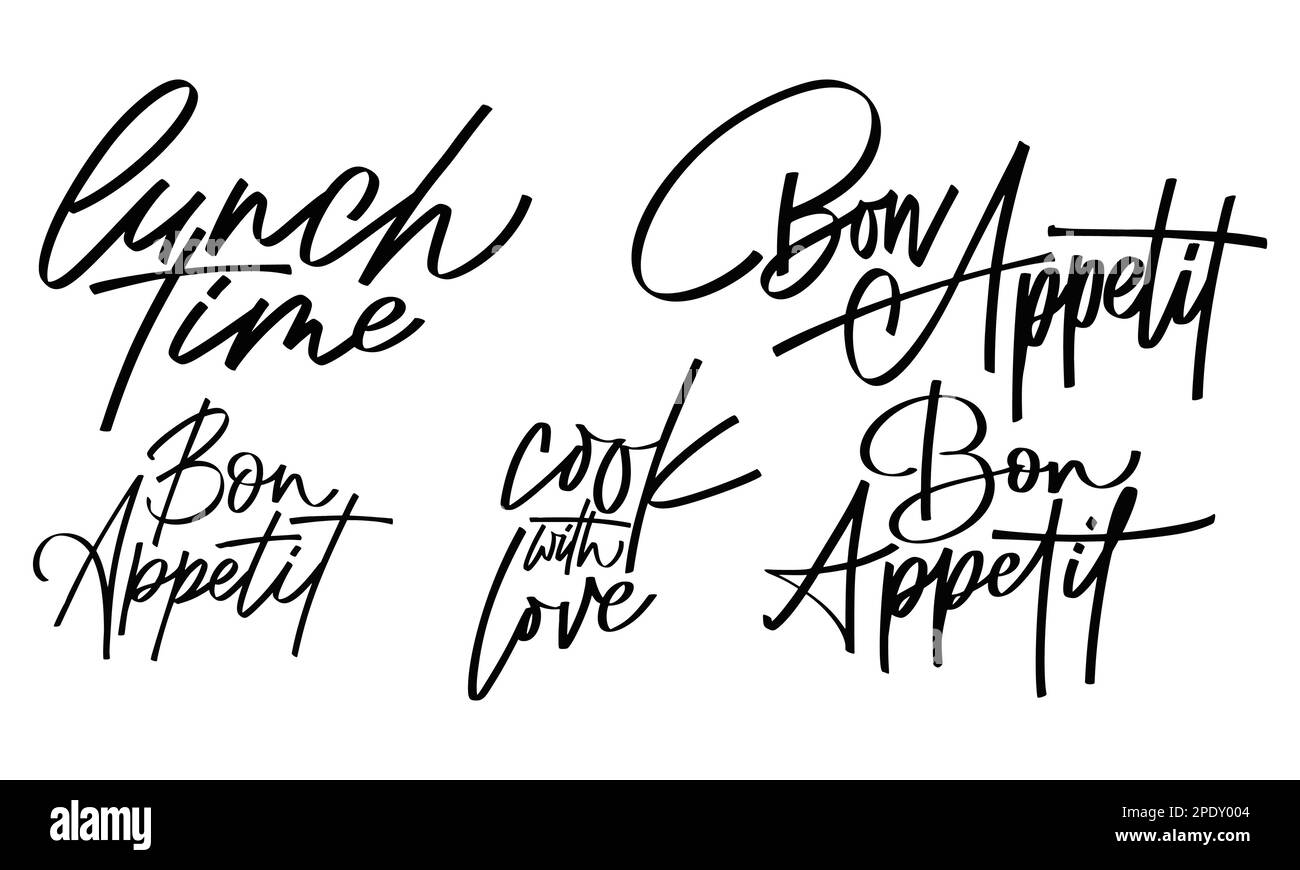 lunch
Time
Bon
Appetit
Bon
Appetit
cook
with
love
Bon
Appetit
alamy
Image ID: 2PDY004
www.alamy.com